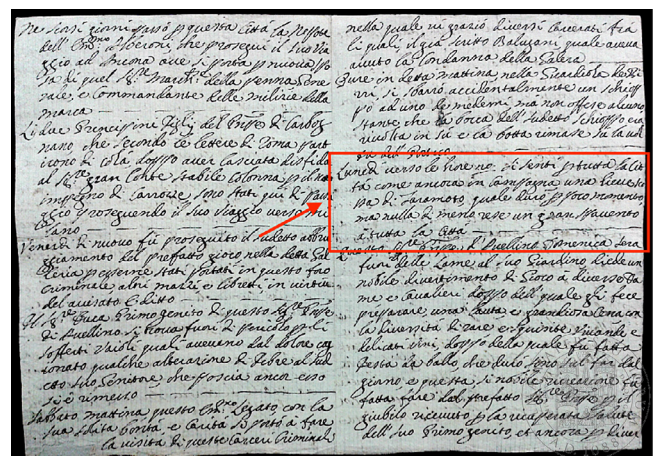 Ne scorsi giorni passò p questa Città la Nepote
dell' Em.mo che proseguì il suo viag
gio ad Ancona ove si porta p nuova spo
sa di quel Sig.r March.e della Penna Gene
rale, e Commandante delle milizie della
marca
Li due Principini figli del Pnpe di Carbog
nano, che secondo le lettere di Roma part
irono di colà doppo aver lasciata
al gran Conte stabile Colonna p il
impegno di Carrozze sono stati qui di pass
aggio proseguendo il suo viaggio verso Mi
lano
Venerdì di nuovo fù proseguito il sudetto abbru
giamento del prefatto gioco nella detta
p esserne stati portati in questo foro
Criminale altri mazzi e libretti in virtù
del avisato Editto
Il Sig.r Duca Primogenito di questo Sig.r Pnpe
di Avellino si trova fuori di pericolo p li
sofferti Vaioli quali avevano dal dolore cag
ionato qualche alterazione di febre al sud
etto suo Genitore che poscia ancor esso
si è rimesso
Sabbato mattina questo Em.mo Legato con la
sua solita bontà e carità si portò a fare
la visita di queste Carceri Criminali
nella quale vi graziò diversi Carcerati fra
li quali il già scritto Balugani quale aveva
avuto la Condanna della Galera
Pure in detta mattina nella Guardiola de Bir
ri si sbarrò accidentalmente un schiop
po ad uno de medemi ma non offese alcuno
stante che la bocca dell sudetto schioppo era
rivolta in sù e la botta rimase
del Portico
Lunedì verso le hore no. si sentì p tutta la Cit
tà come ancora in Campagna una lieve sco
ssa di Taramoto quale durò p poco momento
ma nulla di meno rese un gran spavento
a tutta la Città
Questo Pnpe di Avellino Domenica sera
fuori delle Lame al suo Giardino diede un
nobile divertimento di Gioco a diverse Da
me e Cavalieri doppo dell quale gli fece
preparare una lauta e grandiosa Cena con
la diversità di rare e squisite vivande e
delicati vini doppo della quale fù fatta
festa da ballo, che durò sino sul far dal
giorno e questa sì nobile ricreazione fù
fatta fare dal prefatto Pnpe p il
giubilo ricevuto p la ricuperata salute
dell suo Primogenito, et ancora p diver